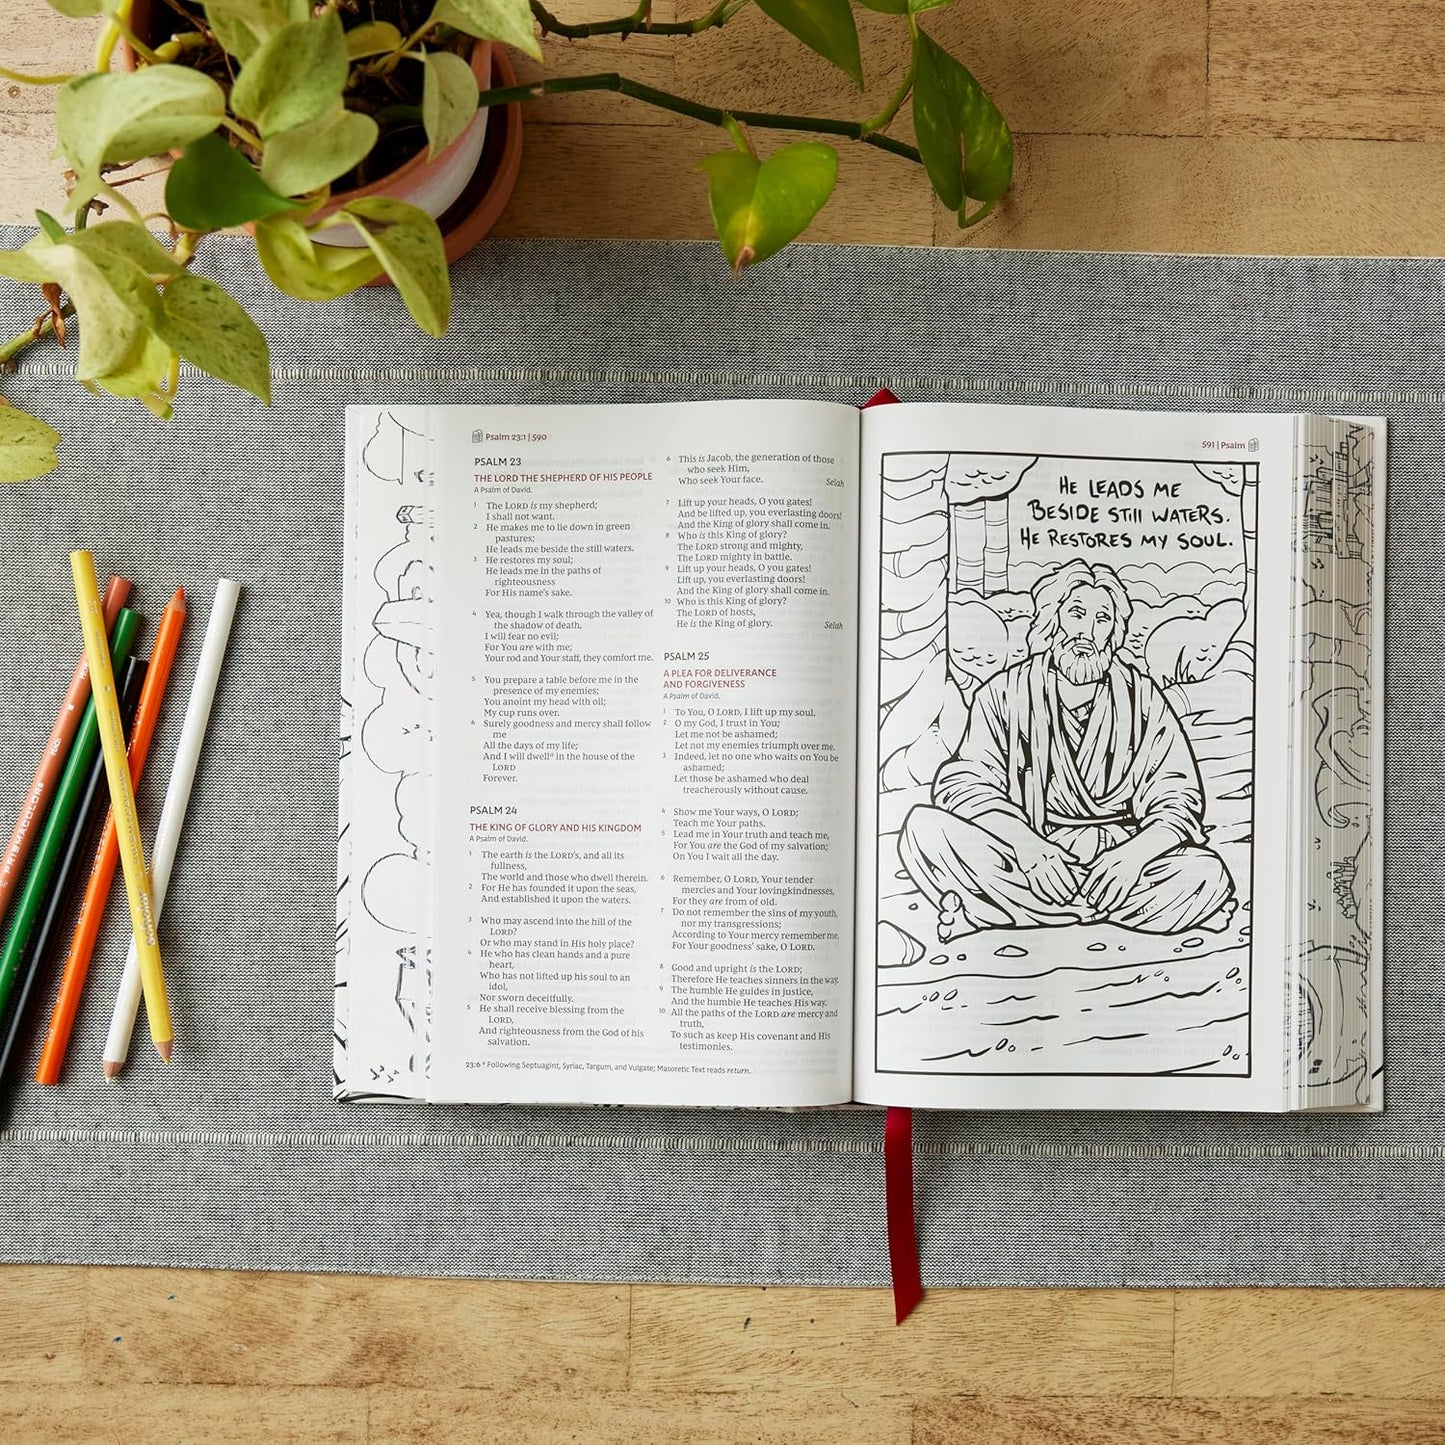 Psalm 23:1 | 590
PSALM 23
THE LORD THE SHEPHERD OF HIS PEOPLE
A Psalm of David.
1 The LORD is my shepherd;
I shall not want.
2 He makes me to lie down in green
pastures;
He leads me beside the still waters.
3 He restores my soul;
He leads me in the paths of
righteousness
For His name's sake.
4 Yea, though I walk through the valley of
the shadow of death,
I will fear no evil;
For You are with me;
Your rod and Your staff, they comfort me.
5 You prepare a table before me in the
presence of my enemies;
You anoint my head with oil;
My cup runs over.
6 Surely goodness and mercy shall follow
me
All the days of my life;
And I will dwellᵃ in the house of the
LORD
Forever.
PSALM 24
THE KING OF GLORY AND HIS KINGDOM
A Psalm of David.
1 The earth is the LORD's, and all its
fullness,
The world and those who dwell therein.
2 For He has founded it upon the seas,
And established it upon the waters.
3 Who may ascend into the hill of the
LORD?
Or who may stand in His holy place?
4 He who has clean hands and a pure
heart,
Who has not lifted up his soul to an
idol,
Nor sworn deceitfully.
5 He shall receive blessing from the
LORD,
And righteousness from the God of his
salvation.
6 This is Jacob, the generation of those
who seek Him,
Who seek Your face. Selah
7 Lift up your heads, O you gates!
And be lifted up, you everlasting doors!
And the King of glory shall come in.
8 Who is this King of glory?
The LORD strong and mighty,
The LORD mighty in battle.
9 Lift up your heads, O you gates!
Lift up, you everlasting doors!
And the King of glory shall come in.
10 Who is this King of glory?
The LORD of hosts,
He is the King of glory. Selah
PSALM 25
A PLEA FOR DELIVERANCE
AND FORGIVENESS
A Psalm of David.
1 To You, O LORD, I lift up my soul.
2 O my God, I trust in You;
Let me not be ashamed;
Let not my enemies triumph over me.
3 Indeed, let no one who waits on You be
ashamed;
Let those be ashamed who deal
treacherously without cause.
4 Show me Your ways, O LORD;
Teach me Your paths.
5 Lead me in Your truth and teach me,
For You are the God of my salvation;
On You I wait all the day.
6 Remember, O LORD, Your tender
mercies and Your lovingkindnesses,
For they are from of old.
7 Do not remember the sins of my youth,
nor my transgressions;
According to Your mercy remember me,
For Your goodness' sake, O LORD.
8 Good and upright is the LORD;
Therefore He teaches sinners in the way.
9 The humble He guides in justice,
And the humble He teaches His way.
10 All the paths of the LORD are mercy and
truth,
To such as keep His covenant and His
testimonies.
23:6 ᵃ Following Septuagint, Syriac, Targum, and Vulgate; Masoretic Text reads return.
591 | Psalm
HE LEADS ME
BESIDE STILL WATERS.
HE RESTORES MY SOUL.
PRISMACOLOR